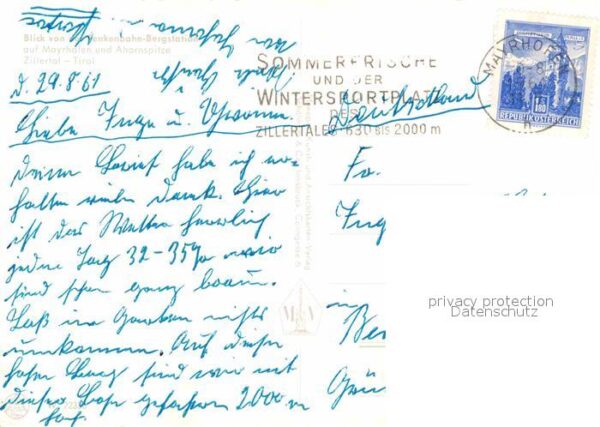 Blick von
Penkenbahn-Bergstation
auf Mayrhofen und Ahornspitze
Zillertal - Tirol
d. 29.8.61
Liebe Inge u. Yvonne.
Deinen Brief habe ich er-
halten vielen Dank. Hier
ist das Wetter herrlich
jeden Tag 32-35° wir
sind schon ganz braun.
Laß im Garten nichts
umkommen. Auf diesen
hohen Berg sind wir mit
dieser Bahn gefahren 2000 m
hoch
SOMMERFRISCHE
UND DER
WINTERSPORTPLATZ
DES
ZILLERTALES 630 BIS 2000 m
MAYRHOFEN
1.80
REPUBLIK ÖSTERREICH
Deutschland
Fa.
Inge
in
Ber
privacy protection
Datenschutz